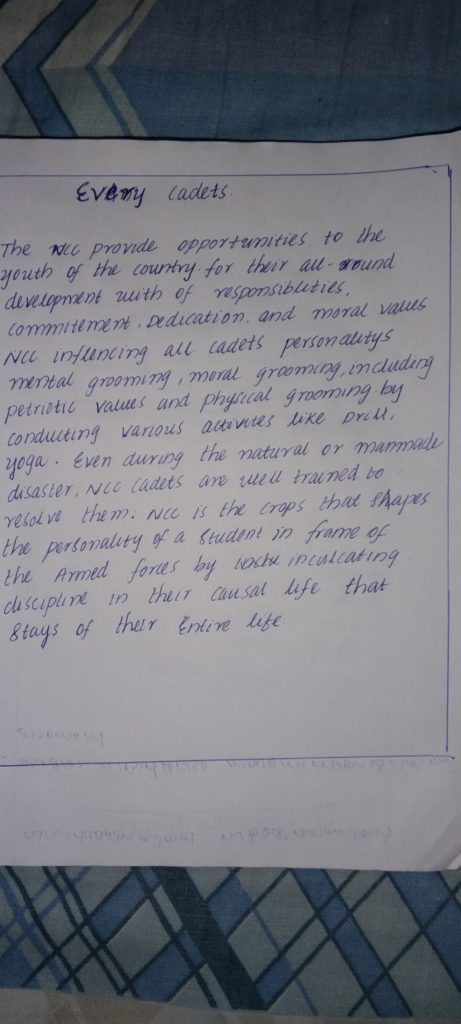 Every cadets.
The NCC provide opportunities to the
youth of the country for their all-round
development with of responsibleties,
commitement, Dedication. and moral values
NCC inflencing all cadets personalitys
mental grooming, moral grooming, including
petriotic values and physical grooming by
conducting various activites like Drill,
yoga. Even during the natural or manmade
disaster, NCC cadets are well trained to
resolve them. NCC is the crops that shapes
the personality of a student in frame of
the Armed forces by inculcating
discipline in their causal life that
stays of their Entire life